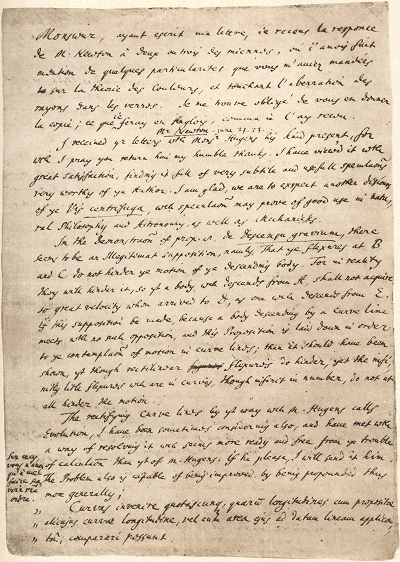 Monsieur, ayant escrit ma letere, ie recens la responce
de M. Newton à deux ou trois des miennes, où j'avois fait
mention de quelques particularites que vous m'aviez mandees
sur la theorie des Couleurs, et touchant l'aberration des
rayons dans les verres. Je me trouve obligé de vous en donner
la copie; ce que ie feray en Anglois, comme ie l'ay receu.
Mr. Newton. june 23. 73.
I received yr letters wth Monsr Hugens his kind present, for
wch I pray you return him my humble thanks. I have viewed it wth
great satisfaction, finding it full of very subtile and usefull speculations
very worthy of ye Author. I am glad, we are to expect another discours
of ye Vis centrifuga, wch speculation may prove of good use in natu-
ral Philosophy and Astronomy, as well as Mechanicks.
In the demonstration of prop. 8. de descensu gravium, there
seems to be an illegitimat supposition, namely, That ye flexures at B
and C do not hinder ye motion of ye descending body. For in reality
they will hinder it, so yt a body wch descends from A, shall not acquire
so great velocity when arrived to D, as one wch descends from E.
If this supposition be made because a body descending by a curve line
meets with no such opposition, and this Proposition is laid down in order
to ye contemplation of motion in curve lines, then it should have been
shown, yt though rectilinear flexures do hinder, yet the infi-
nitly little flexures wch are in curves, though infinit in number, do not at
all hinder the motion.
The rectifying Curve lines by yt way wch M. Hugens calls
Evolution, I have been sometimes considering also, and have met wth
a way of resolving it wch seems more ready and free from ye trouble
of calculation than yt of M. Hugens. If he please, I will send it him.
The Problem also is capable of being improved by being propounded thus
more generally;
Curvas invenire quotascunq, quarum longitudines cum propositae
alicujus curvae longitudine, vel cum area ejus ad datam lineam applica-
ta, comparari possunt.
ordre.